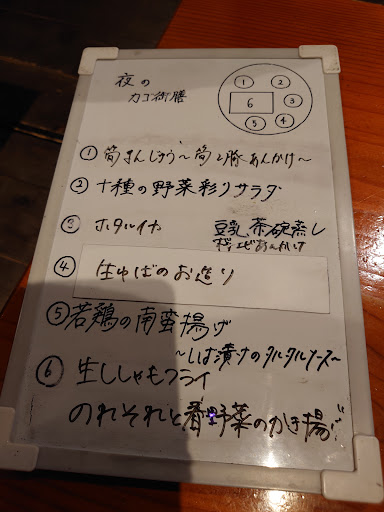 夜の
カゴ御膳
① ② ③ ④ ⑤ 6
① 筍まんじゅう〜筍と豚あんかけ〜
② 十種の野菜彩りサラダ
③ ホタルイカ 豆乳茶碗蒸し
桜エビあんかけ
④ 生ゆばのお造り
⑤ 若鶏の南蛮揚げ
〜しば漬けのタルタルソース〜
⑥ 生ししゃもフライ
のれそれと春野菜のかき揚げ